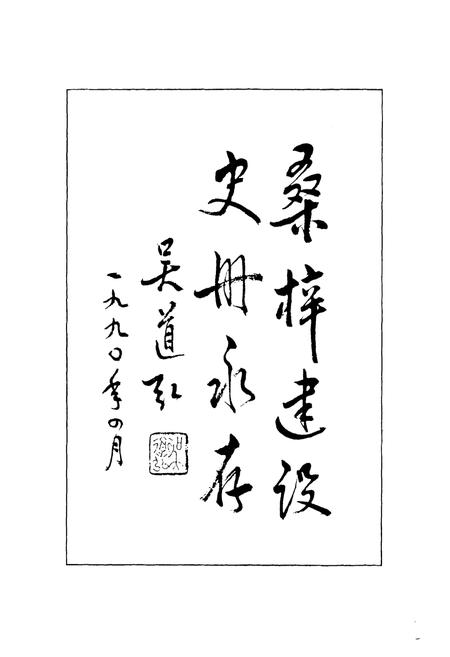 桑梓建设
史册永存
吴道弘
一九九〇年四月